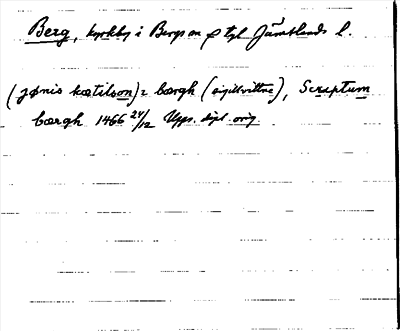 Berg, kyrkby i Bergs sn o tgl Jämtlands l.
(jønis kætilson) i bærgh (sigillvittne), Scriptum
bærgh 1466 24/12 Upps. dipl. orig.